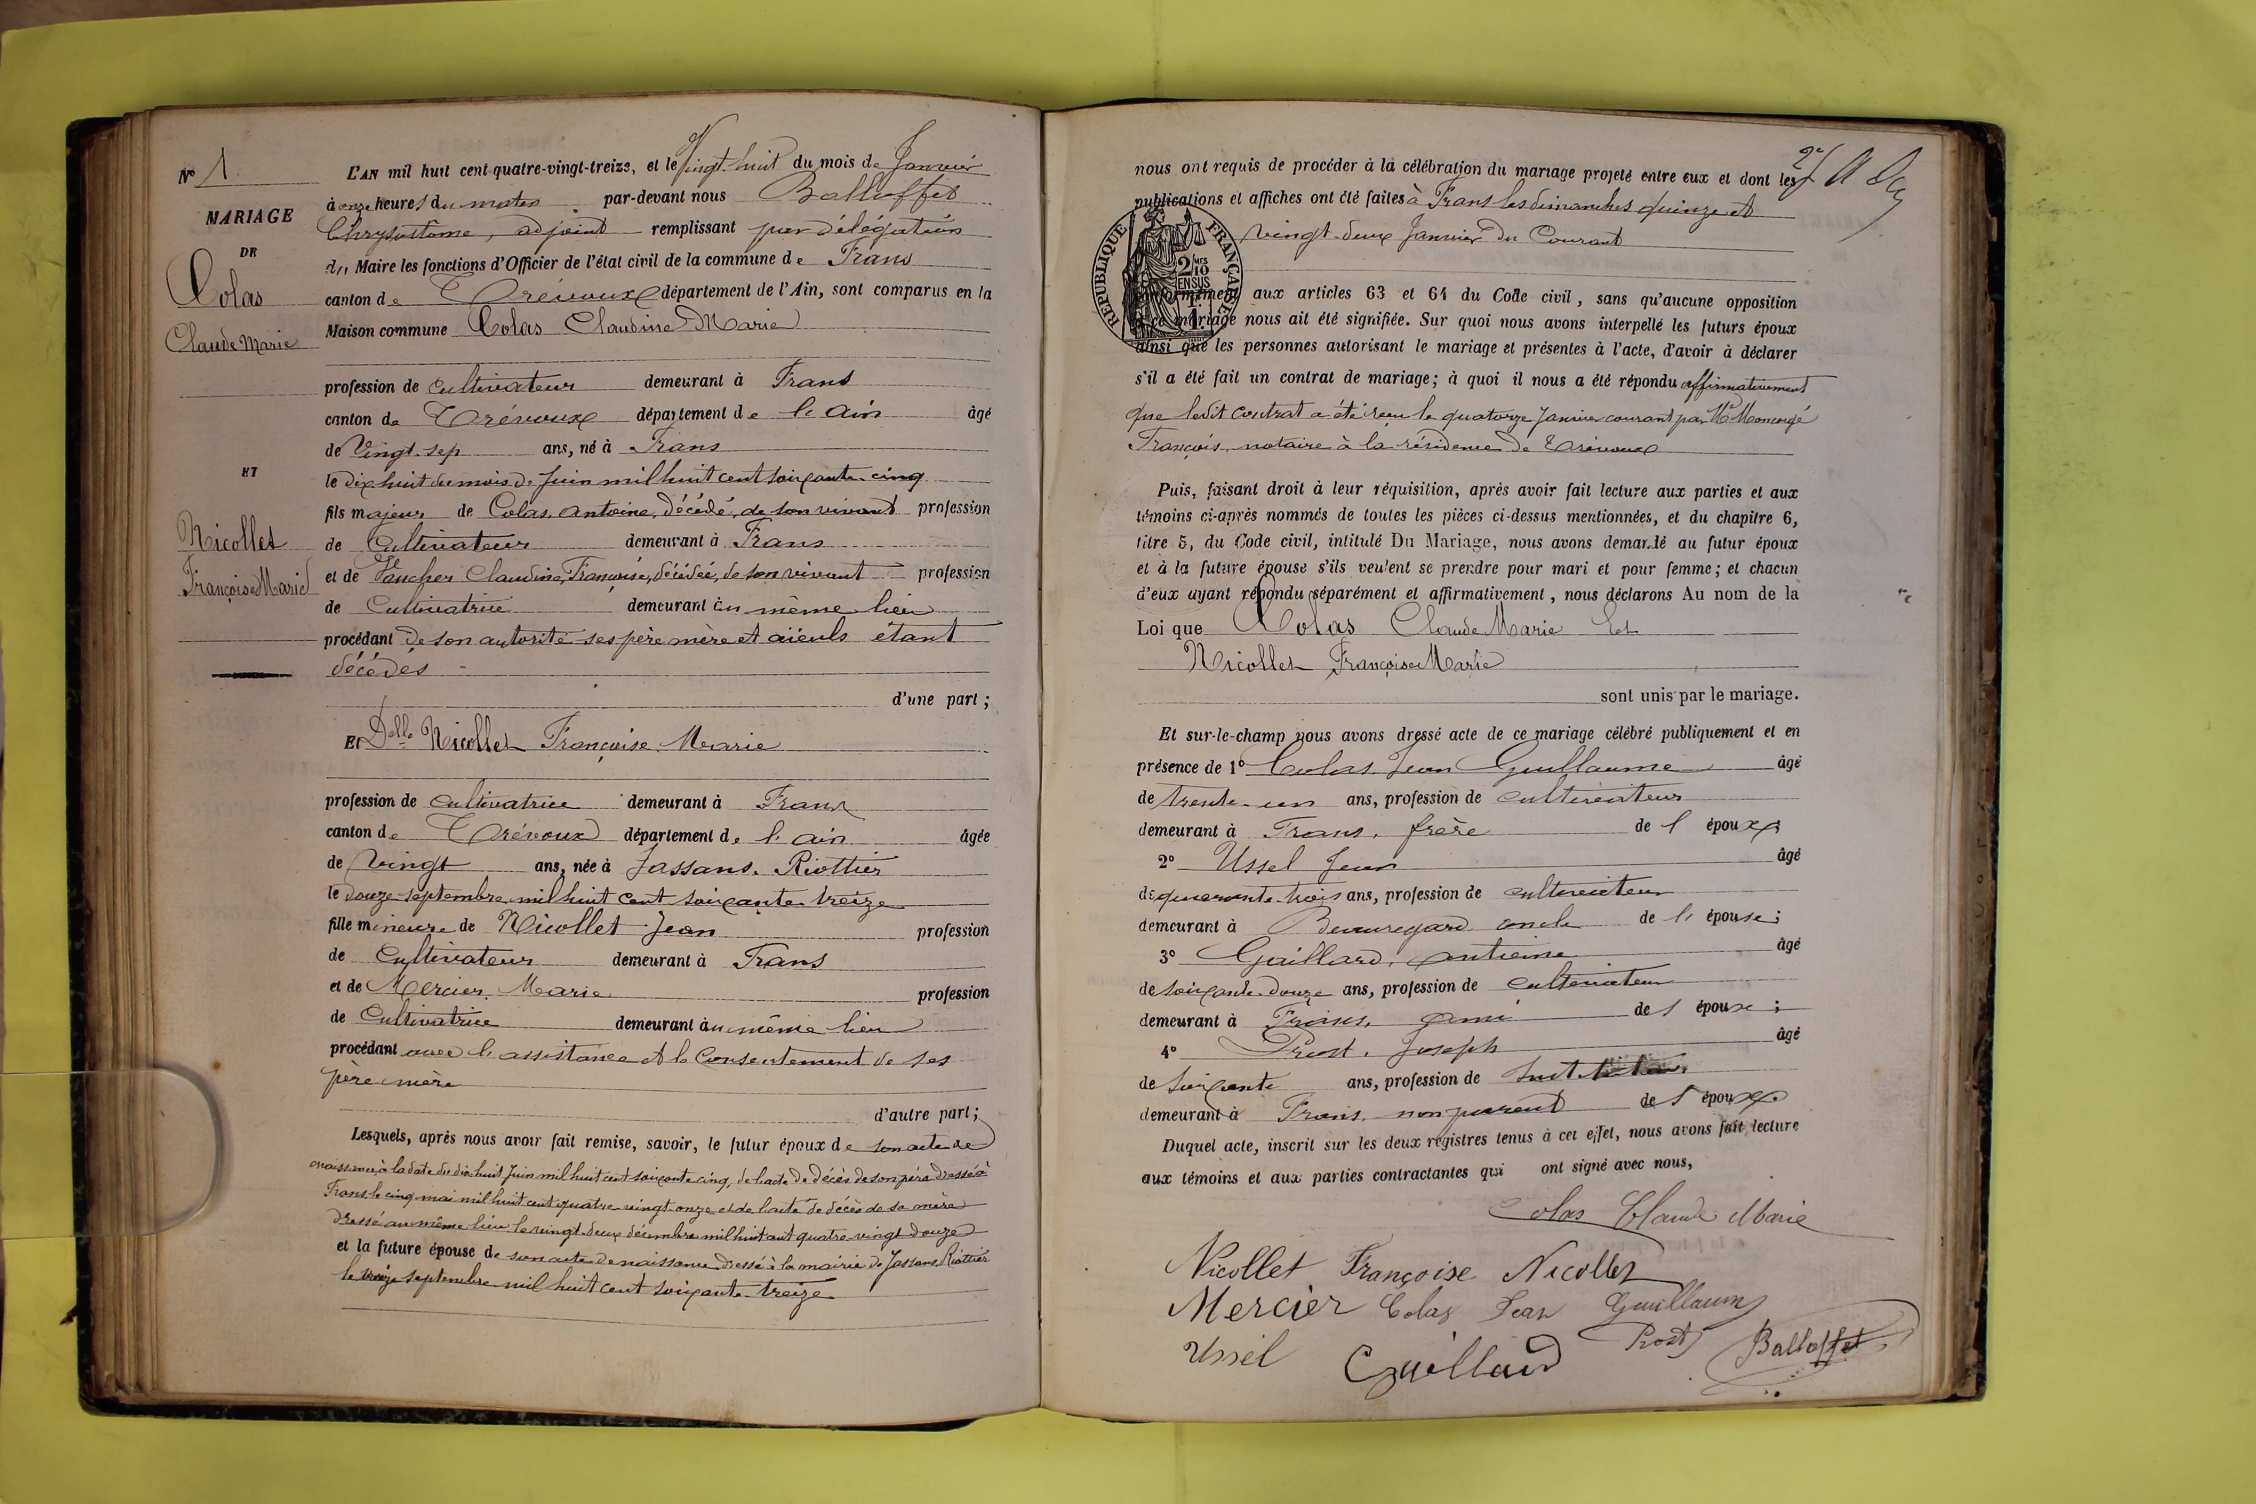 N° 1
MARIAGE
DE
Colas
Claude Marie
ET
Nicollet
Françoise Marie
L'AN mil huit cent quatre-vingt-treize, et le Vingt-huit du mois de Janvier
à onze heures du matin par-devant nous Balloffet
Chrysostôme, adjoint remplissant par délégation
du Maire les fonctions d'Officier de l'état civil de la commune de Frans
canton de Trévoux département de l'Ain, sont comparus en la
Maison commune Colas Claudine Marie
profession de cultivateur demeurant à Frans
canton de Trévoux département de l'Ain âgé
de Vingt-sep ans, né à Frans
le dix huit du mois de Juin mil huit cent soixante-cinq
fils majeur de Colas, Antoine, décédé, de son vivant profession
de Cultivateur demeurant à Frans
et de Faucher Claudine, Françoise, décédée, de son vivant profession
de Cultivatrice demeurant au même lieu
procédant de son autorité ses père mère et aïeuls étant
décédés
d'une part;
Et Delle Nicollet Françoise Marie
profession de cultivatrice demeurant à Frans
canton de Trévoux département de l'ain âgée
de Vingt ans, née à Jassans-Riottier
le douze septembre mil huit cent soixante treize
fille mineure de Nicollet Jean profession
de Cultivateur demeurant à Frans
et de Mercier, Marie profession
de Cultivatrice demeurant au même lieu
procédant avec l'assistance et le Consentement de ses
père mère
d'autre part;
Lesquels, après nous avoir fait remise, savoir, le futur époux de son acte de
naissance à la date du dix huit Juin mil huit cent soixante cinq, de l'acte de décès de son père dressé à
Frans le cinq mai mil huit cent quatre vingt onze et de l'acte de décès de sa mère
dressé au même lieu le vingt-deux décembre mil huit cent quatre-vingt douze
et la future épouse de son acte de naissance dressé à la mairie de Jassans Riottier
le treize septembre mil huit cent soixante-treize
nous ont requis de procéder à la célébration du mariage projeté entre eux et dont les
publications et affiches ont été faites à Frans les dimanches quinze et
vingt-deux Janvier du Courant
RÉPUBLIQUE FRANÇAISE
2/10 MES
EN SUS
conformément aux articles 63 et 64 du Code civil, sans qu'aucune opposition
à ce mariage nous ait été signifiée. Sur quoi nous avons interpellé les futurs époux
ainsi que les personnes autorisant le mariage et présentes à l'acte, d'avoir à déclarer
s'il a été fait un contrat de mariage; à quoi il nous a été répondu affirmativement
que ledit contrat a été reçu le quatorze Janvier courant par Me
François, notaire à la résidence de Trévoux
Puis, faisant droit à leur réquisition, après avoir fait lecture aux parties et aux
témoins ci-après nommés de toutes les pièces ci-dessus mentionnées, et du chapitre 6,
titre 5, du Code civil, intitulé Du Mariage, nous avons demandé au futur époux
et à la future épouse s'ils veulent se prendre pour mari et pour femme; et chacun
d'eux ayant répondu séparément et affirmativement, nous déclarons Au nom de la
Loi que Colas Claude Marie Et
Nicollet Françoise Marie
sont unis par le mariage.
Et sur-le-champ nous avons dressé acte de ce mariage célébré publiquement et en
présence de 1° Colas, Jean Guillaume âgé
de trente-un ans, profession de cultivateur
demeurant à Frans, frère de l'époux;
2° Ussel Jean âgé
de quarante-trois ans, profession de cultivateur
demeurant à Beauregard oncle de l'épouse;
3° Gaillard, antoine âgé
de soixante-douze ans, profession de cultivateur
demeurant à Frans, ami de l'époux;
4° Prost, Joseph âgé
de soixante ans, profession de
demeurant à Frans, non parent de l'époux.
Duquel acte, inscrit sur les deux registres tenus à cet effet, nous avons fait lecture
aux témoins et aux parties contractantes qui ont signé avec nous,
Colas Claude Marie
Nicollet Françoise Nicollet
Mercier Colas Jean Guillaume
Ussel Gaillard Prost Balloffet